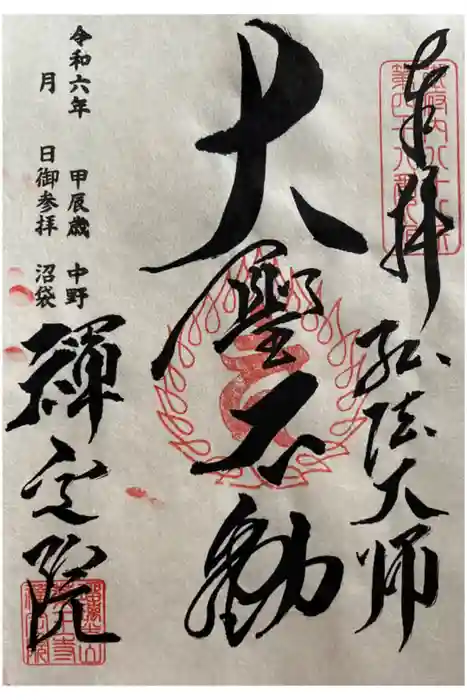 奉拝 弘法大師
大聖不動
令和六年 甲辰歳 中野
月 日御参拝 沼袋
禪定院